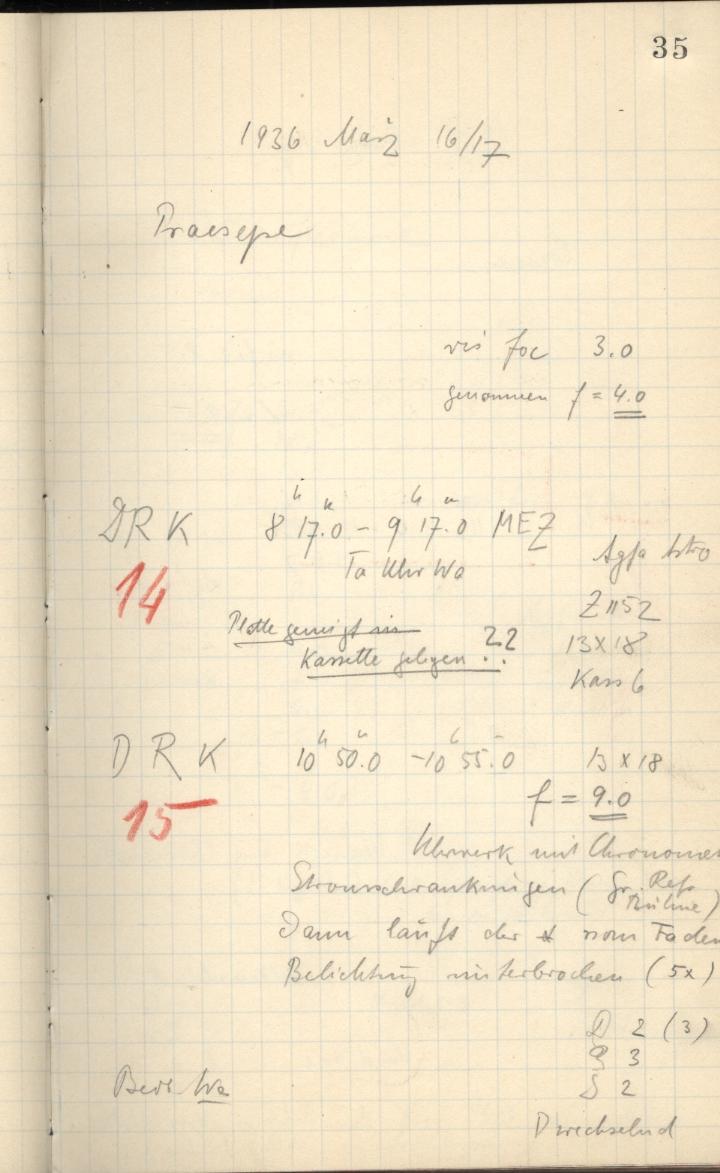 35
1936 März 16/17
Praesepe
vis foc 3.0
genommen f = 4.0
DRK 8h 17.0m - 9h 17.0m MEZ
Ta Uhr Wa
Agfa Astro
14
Z 1152
Platte geneigt in
Kassette gelegen ??
13x18
Kass 6
DRK 10h 50.0m - 10h 55.0 13 x 18
f = 9.0
15
Uhrwerk mit Chronomet
Stromschwankungen (Gr. Refr. Bühne)
Dann läuft der * vom Faden
Belichtung unterbrochen (5x)
D 2 (3)
3
S 2
Beob Wa
D wechselnd